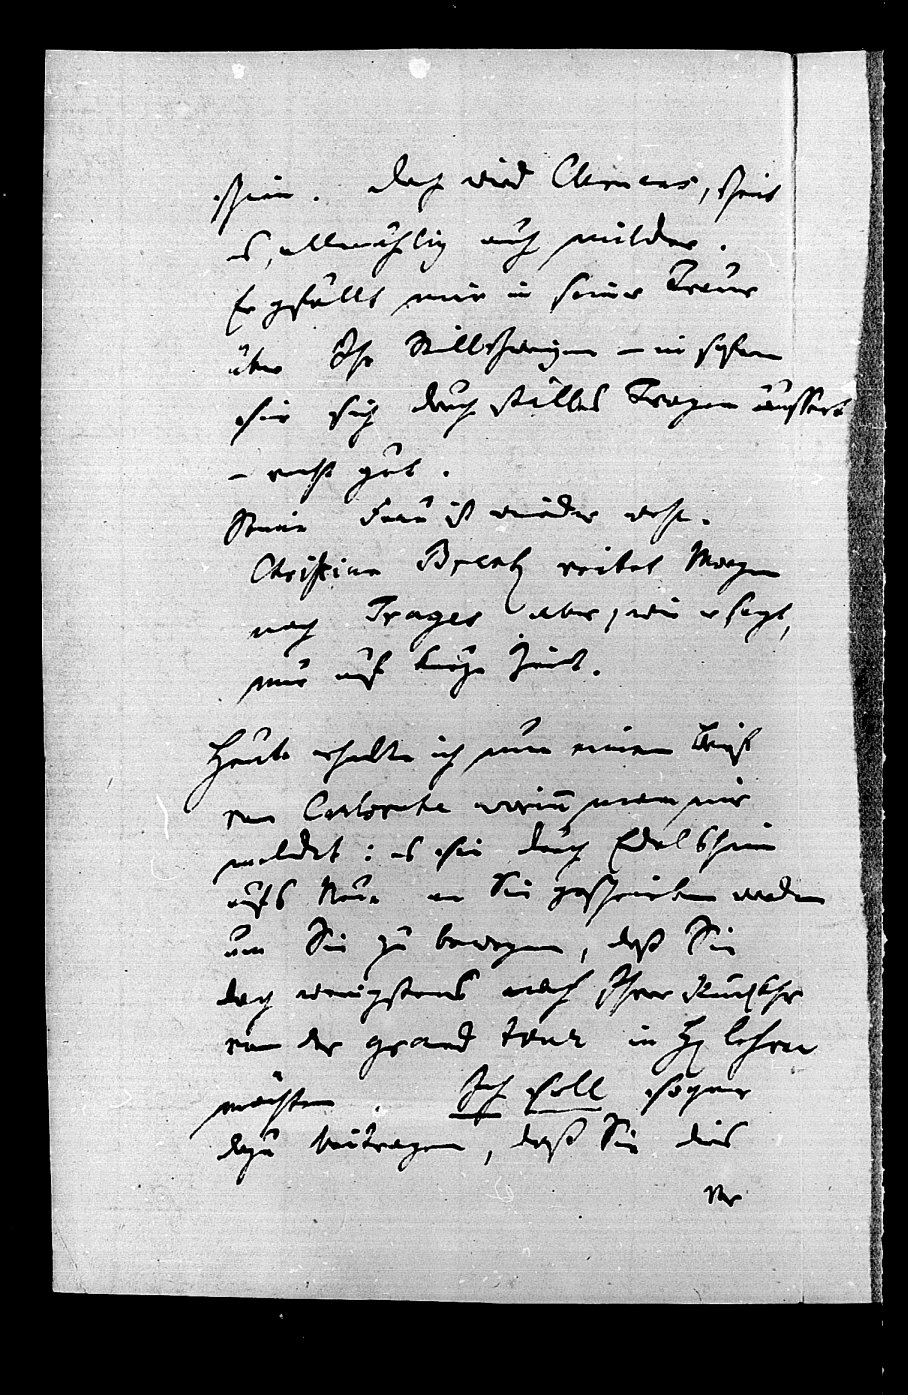 schien. doch wird Clemens, scheint
es, allmählig auch milder.
Er gefällt mir in seiner Treue
über Ihr Stillschweigen – in sofern
sie sich durch stilles Tragen äussert
– recht gut.
Seine Frau ist wieder wohl.
Christian Brent reitet Morgen
nach Trages aber, wie er sagt,
nur auf kurze Zeit.
Heute erhalte ich nun einen Brief
von Carlsruhe worinn man mir
meldet: es sei durch Edelsheim
aufs Neue an Sie geschrieben worden
um Sie zu bewegen, daß Sie
doch wenigstens nach Ihrer Rückkehr
von der grand tour in H lehren
möchten. Ich soll sogar
dazu beitragen, daß Sie dies